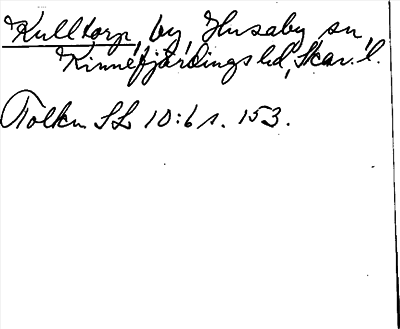 Kulltorp, by, Husaby sn,
Kinnefjärdings hd, Skar. l.
Tolkn SL 10:6 s. 153.